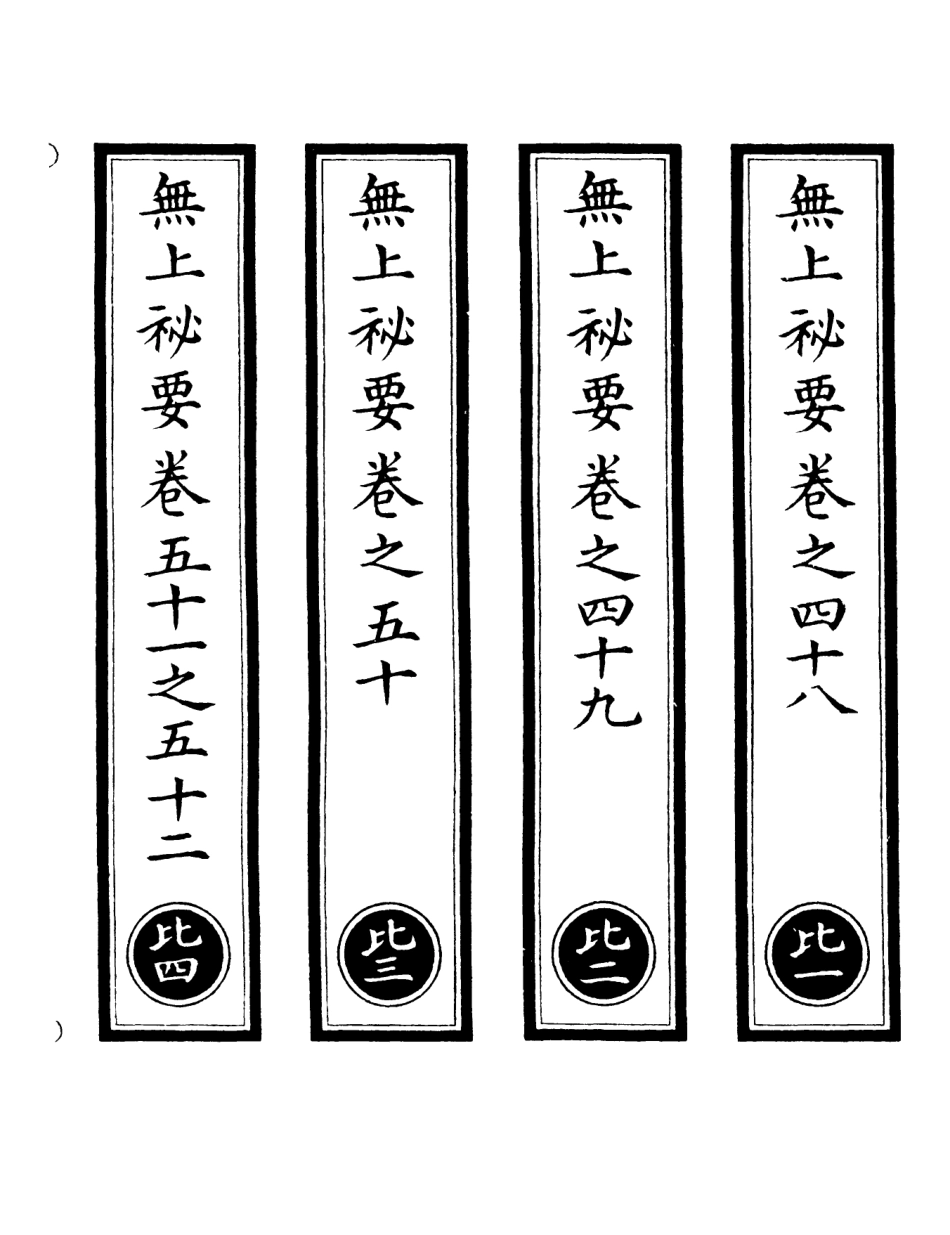 無上祕要卷之四十八
比一
無上祕要卷之四十九
比二
無上祕要卷之五十
比三
無上祕要卷五十一之五十二
比四